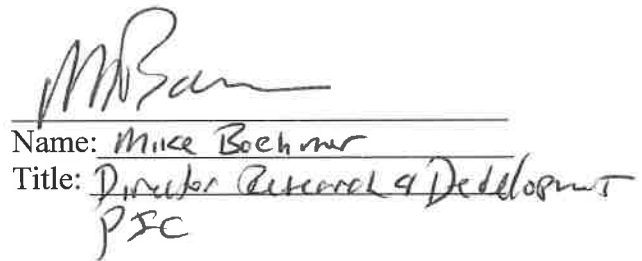 Name: Mike Boehmer
Title: Director Research & Development
PIC